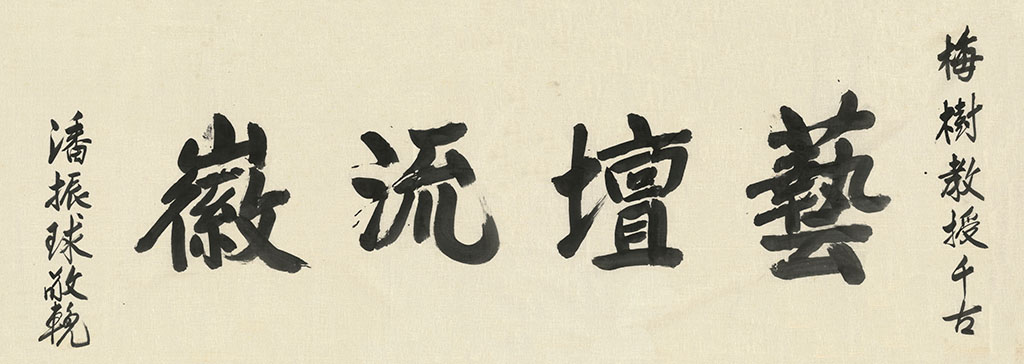 梅樹教授千古
藝壇流徽
潘振球敬輓